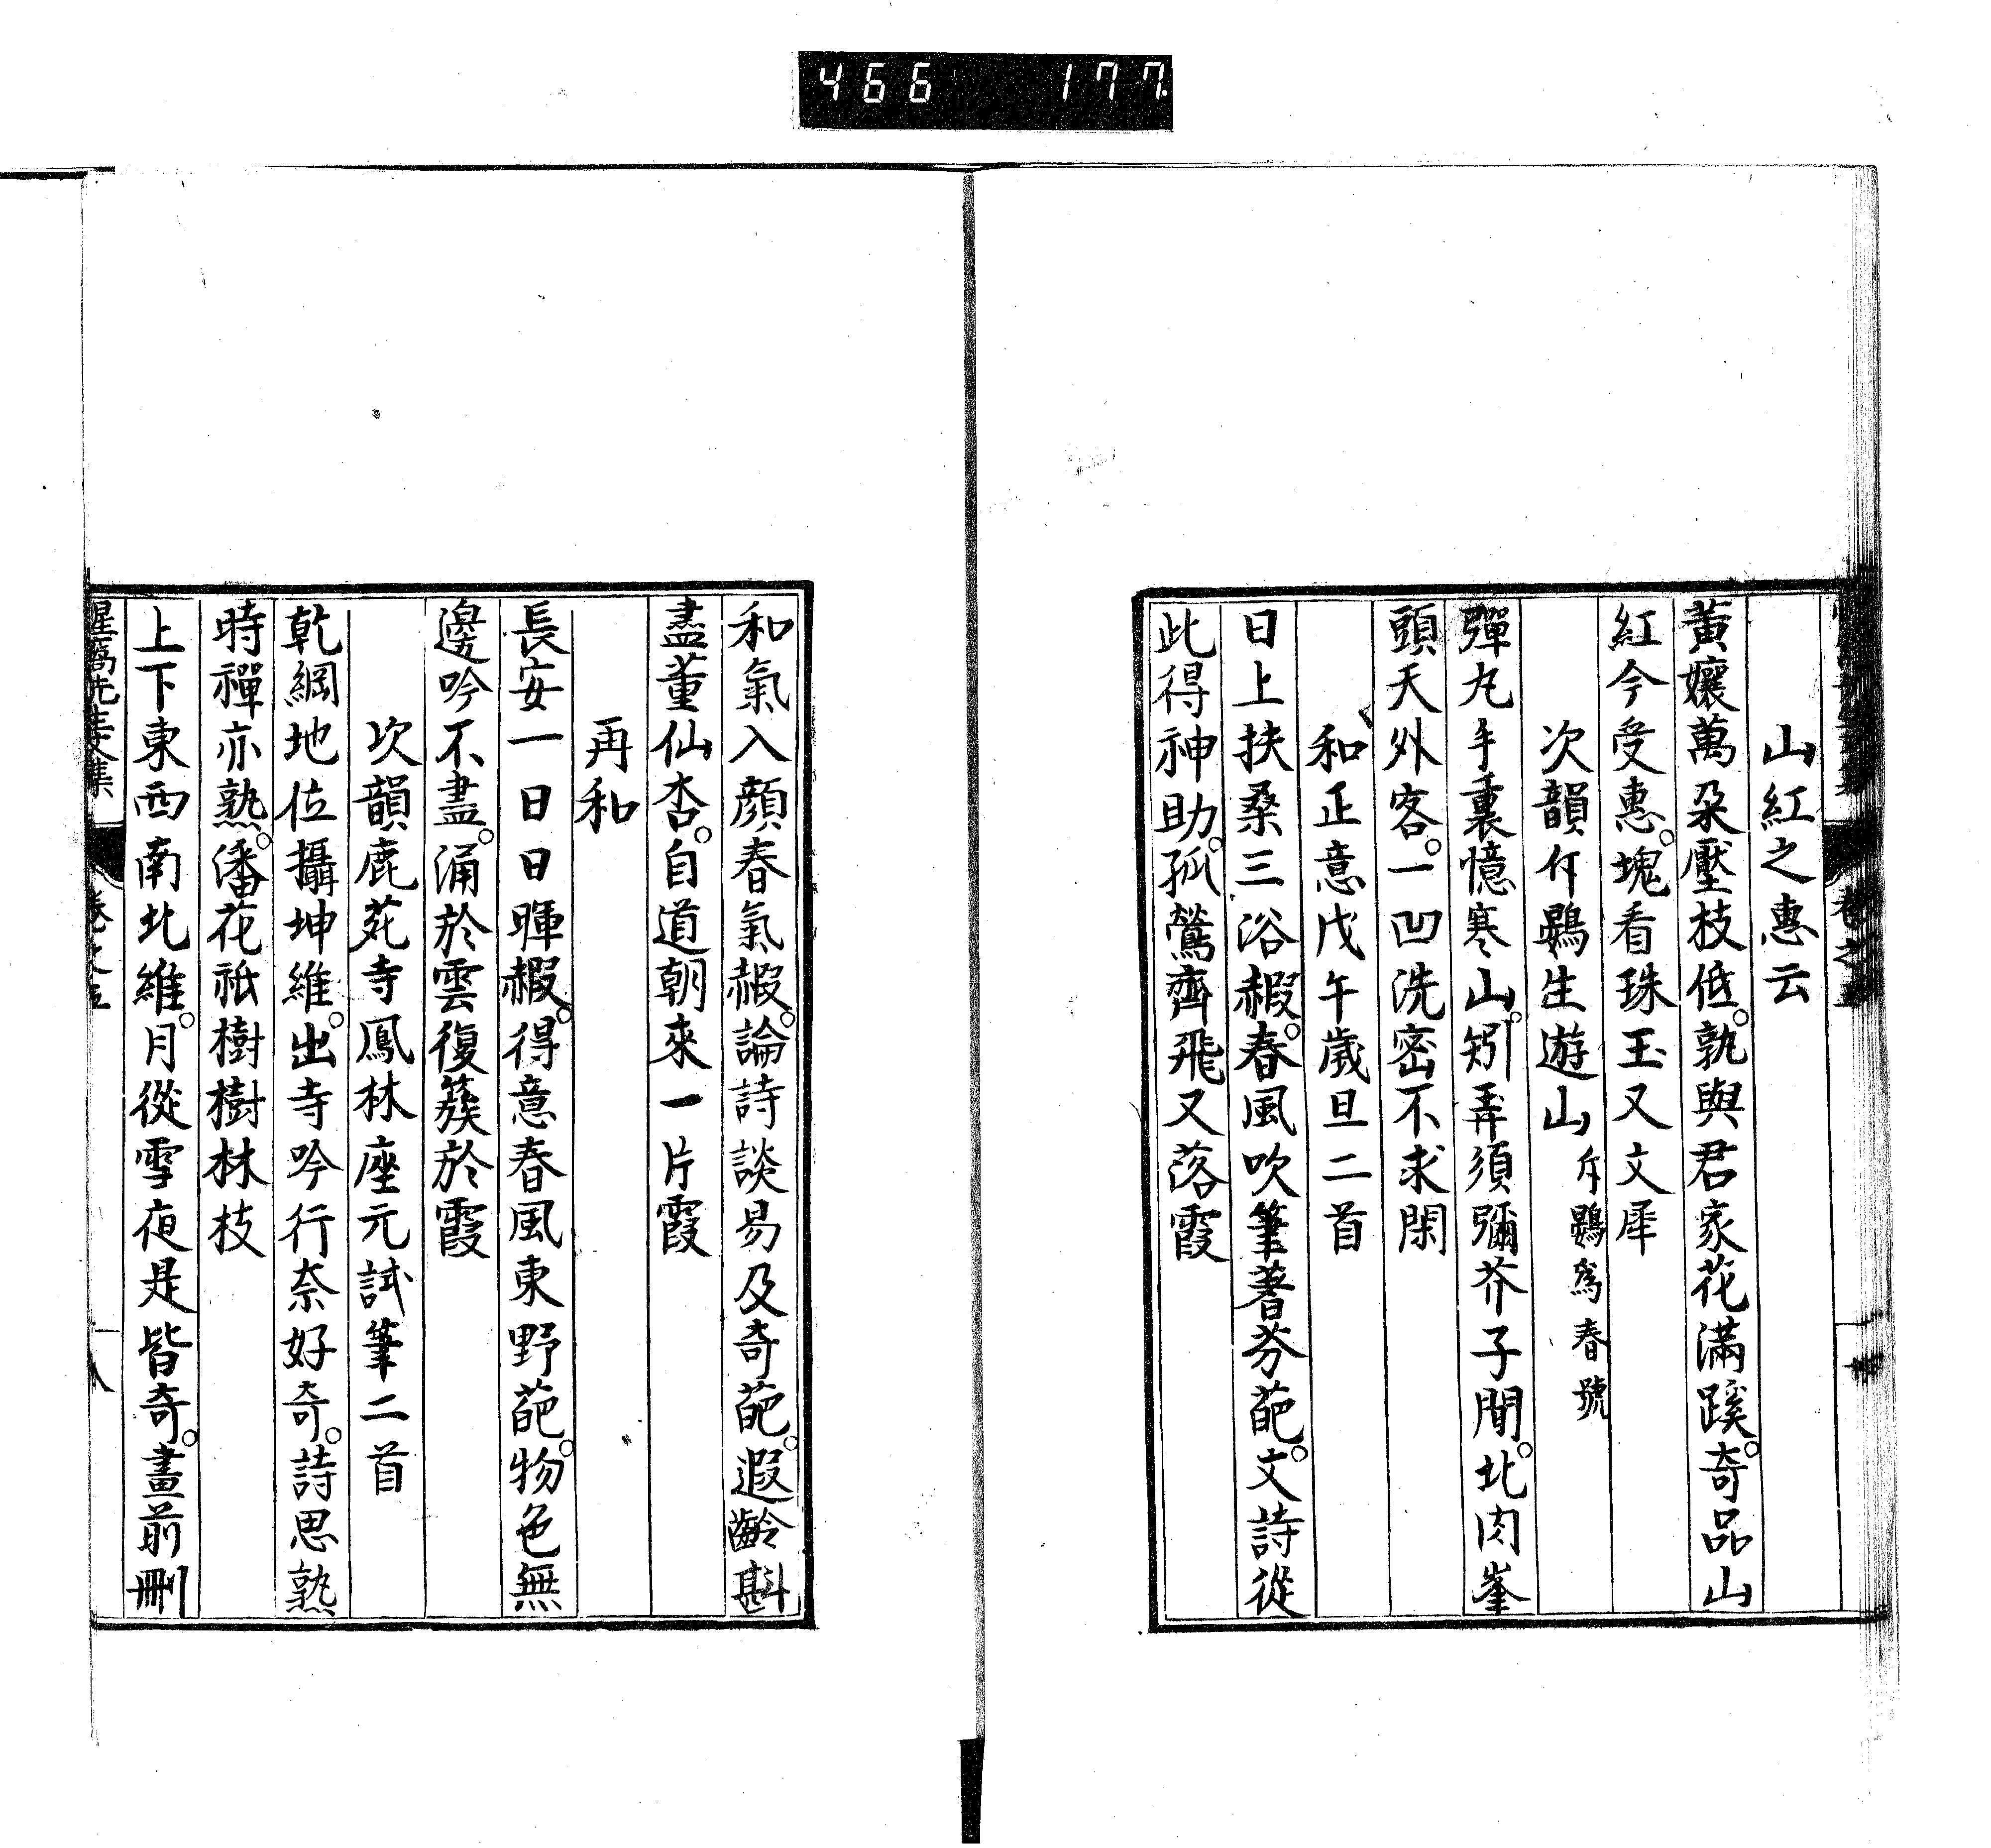 466 177.
山紅之惠云
黃孃萬朶壓枝低。孰與君家花滿蹊。奇品山
紅今受惠。塊看珠玉又文犀
次韻斥鷃生遊山 斥鷃爲春號
彈丸手裏憶寒山。矧弄須彌芥子間。北肉峯
頭天外客。一凹洗密不求閑
和正意戊午歲旦二首
日上扶桑三浴赮。春風吹筆著芬葩。文詩從
此得神助。孤鶩齊飛又落霞
和氣入顔春氣赮。論詩談易及奇葩。遐齡斟
盡董仙杏。自道朝來一片霞
再和
長安一日日暉赮。得意春風東野葩。物色無
邊吟不盡。涌於雲復蔟於霞
次韻鹿苑寺鳳林座元試筆二首
乾綱地位攝坤維。出寺吟行奈好奇。詩思熟
時禪亦熟。潘花祇樹樹林枝
上下東西南北維。月從雪夜是皆奇。畫前刪
惺窩先生文集 卷之五 十八